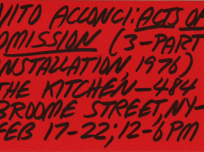 VITO ACCONCI: ACTS OF
OMISSION (3-PART
INSTALLATION 1976)
THE KITCHEN—484
BROOME STREET, NY—
FEB 17-22; 12-6 PM